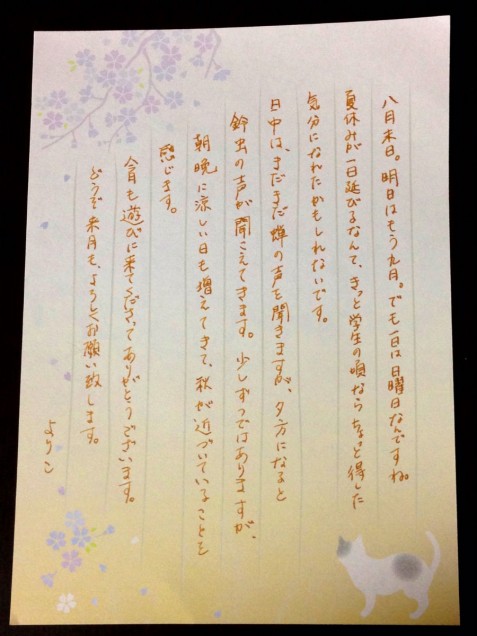 八月末日。明日はもう九月。でも一日は日曜日なんですね。
夏休みが一日延びるなんて、きっと学生の頃ならちょっと得した
気分になれたかもしれないです。
日中は、まだまだ蝉の声を聞きますが、夕方になると
鈴虫の声が聞こえてきます。少しずつではありますが、
朝晩に涼しい日も増えてきて、秋が近づいていることを
感じます。
今月も遊びに来てくださってありがとうございます。
どうぞ来月も、よろしくお願い致します。
よりこ